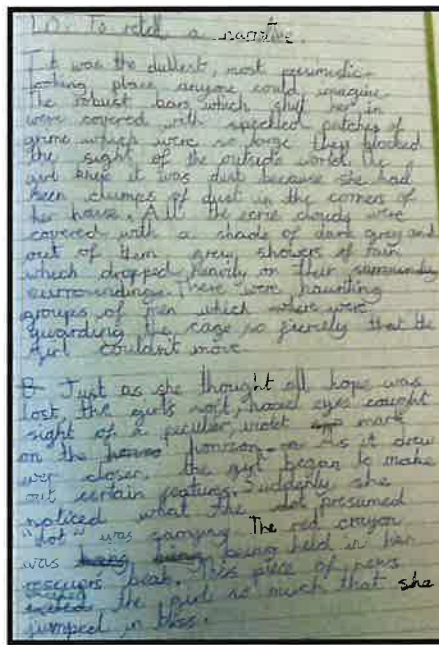 L.O. To retell a narrative.
It was the dullest, most pessimistic-
looking place anyone could imagine.
The robust bars which shut her in
were covered with speckled patches of
grime which were so large they blocked
the sight of the outside world. The
girl knew it was dust because she had
seen clumps of dust in the corners of
her house. All the eerie clouds were
covered with a shade of dark grey and
out of them grew showers of rain
which dropped heavily on their
surroundings. There were haunting
groups of men which were
guarding the cage so fiercely that the
girl couldn't move.
Just as she thought all hope was
lost, the girls soft, hazel eyes caught
sight of a peculiar, violet mark
on the horizon. As it drew
ever closer, the girl began to make
out certain features. Suddenly she
noticed what the presumed
"dot" was carrying. The red crayon
was being held in her
rescuers beak. This piece of news
the girl so much that she
jumped in bliss.